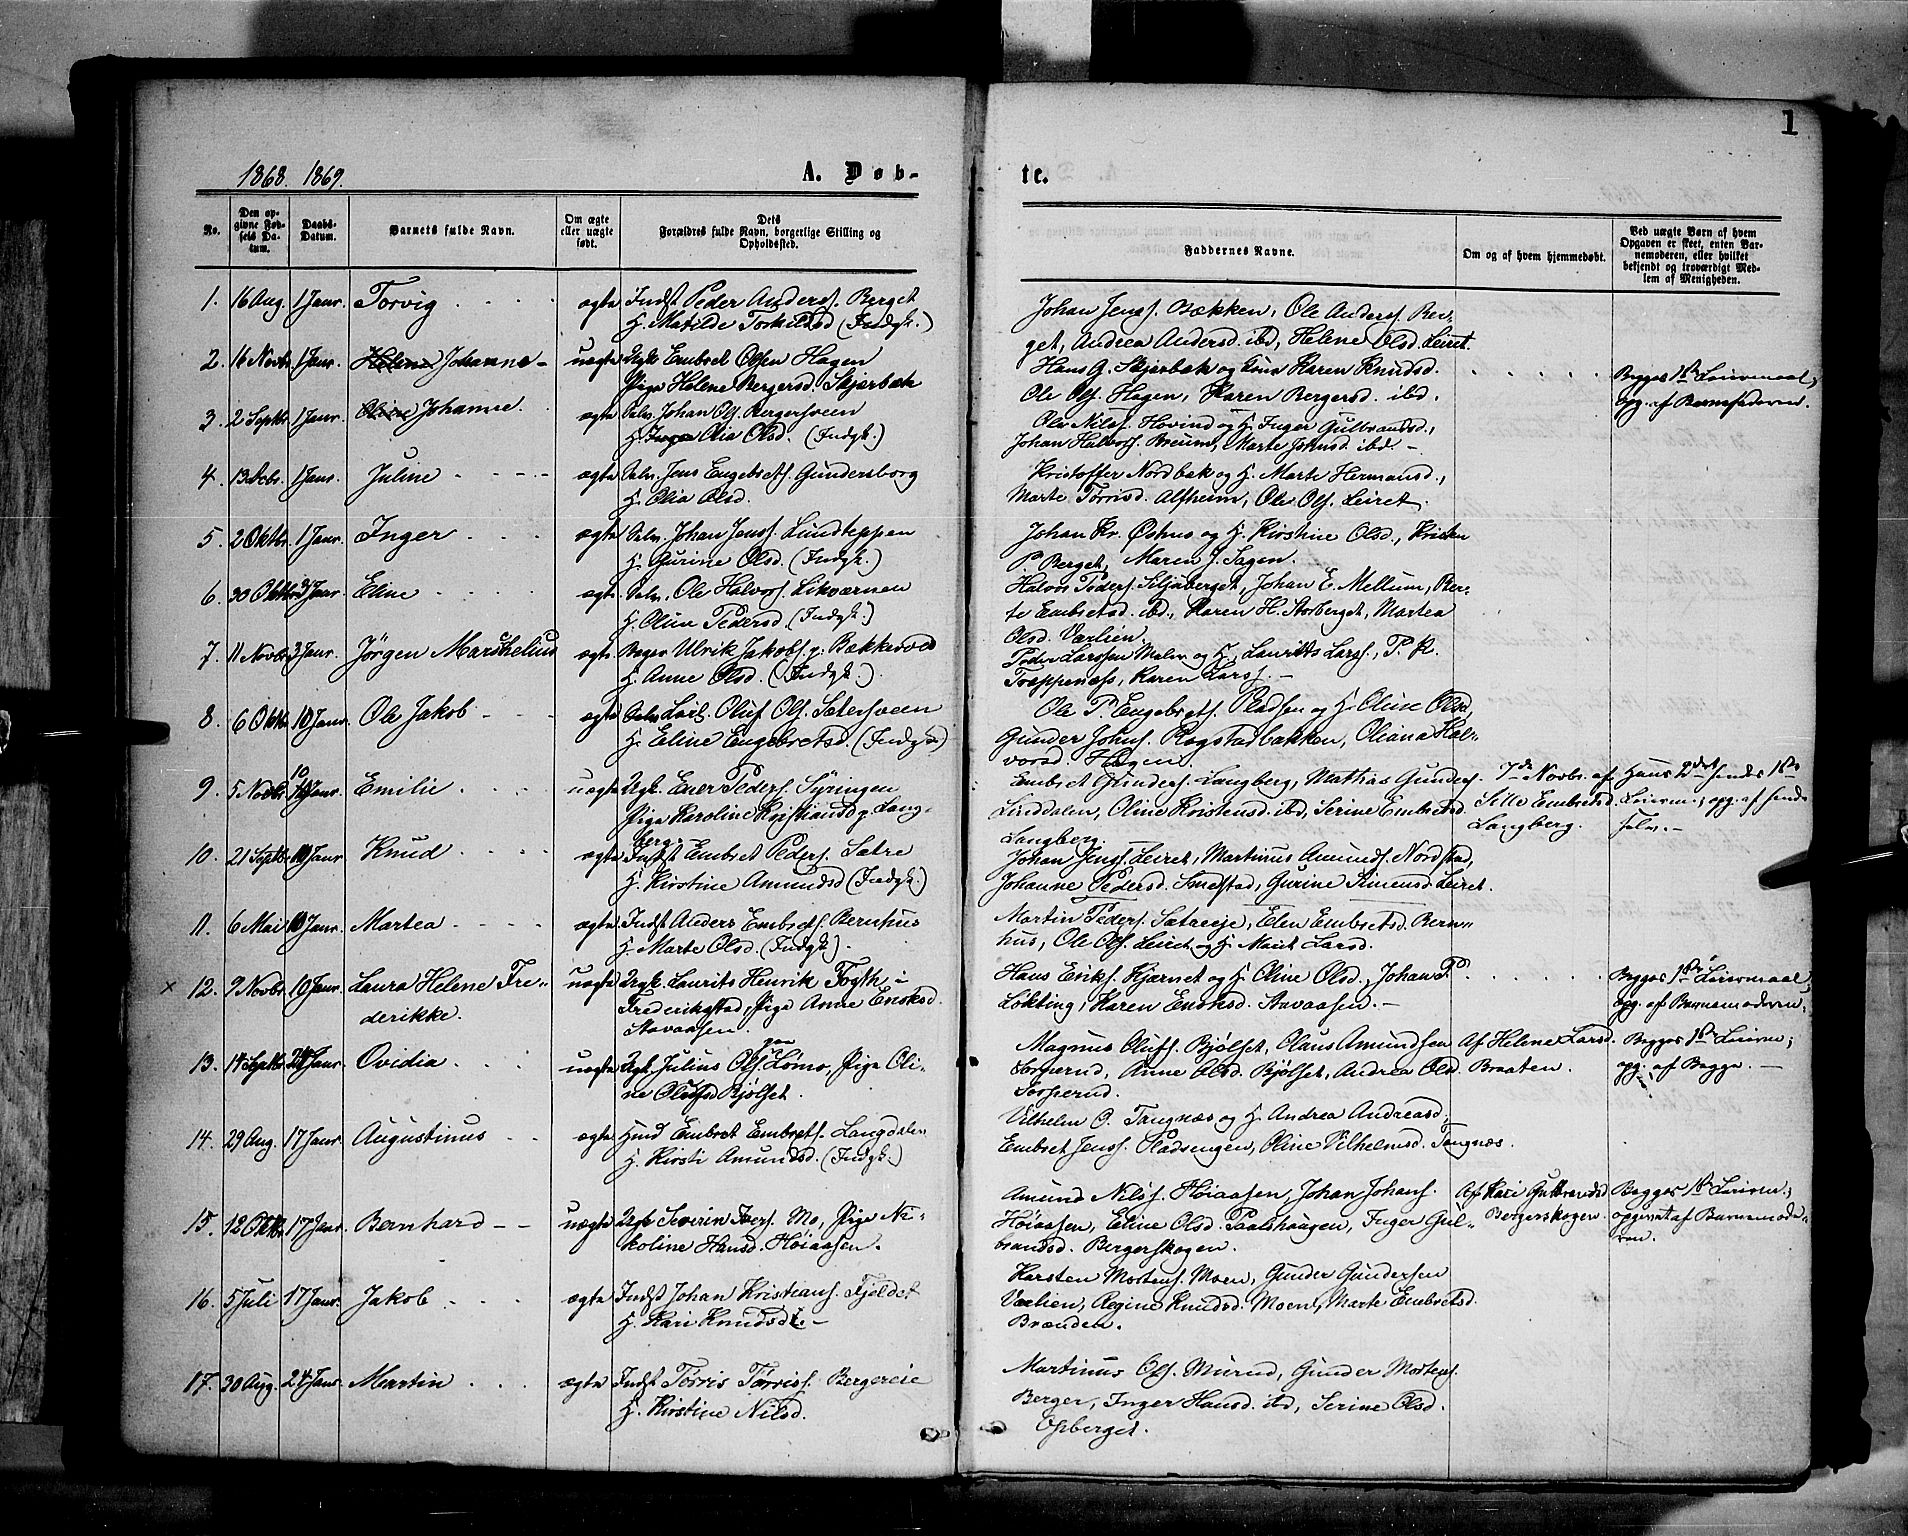 1
1868. 1869. A. Døb-
te.
No.
Den op-
givne Fød-
sels Da-
tum.
Daabs-
Datum.
Barnets fulde Navn.
Om ægte
eller uægte
født.
Dets
Forældres fulde Navn, borgerlige Stilling og
Opholdssted.
Faddernes Navne.
Om og af hvem hjemmedøbt.
Ved uægte Børn af hvem
Opgaven er skeet, enten Bar-
nemoderen, eller hvilket
bekjendt og troværdigt Med-
lem af Menigheden.
1. 16 Aug. 1 Janr. Torvig ægte Indst Peder Anderss. Berget
H. Matilde Torkildsd (Indgk.)
Johan Jenss. Bækken, Ole Anderss Ber-
get, Andrea Andersd. ibd, Helene Olsd. Leiret.
2. 16 Novbr. 1 Janr. Helene Johanne uægte Ugk. Embret Olsen Hagen
Pige Helene Bergersd. Skjærbæk
Hans G. Skjærbæk og Kona Karen Knudsd.
Ole Ols. Hagen, Karen Bergersd. ibd.
Begges 1ste Leiermaal,
opg. af Barnefaderen.
3. 2 Septbr. 1 Janr. Oline Johanne. ægte Selv. Johan Ols. Bergersveen
H. Inger Olia Olsd. (Indgk.)
Ole Nilss. Hovind og H. Inger Gulbrandsd.,
Johan Halvors. Breum, Marte Johnsd. ibd. -
4. 13 Decbr. 1 Janr. Juline ægte Selv. Jens Engebrets. Gundersborg
H. Olia Olsd.
Kristoffer Nordbæk og H. Marte Hermansd.,
Marte Torrisd. Alfheim, Ole Ols. Leiret.
5. 2 Oktbr. 1 Janr. Inger ægte Selv. Johan Jenss. Lundteppen
H. Gurine Olsd. (Indgk.)
Johan Kr. Øshus og H. Kirstine Olsd., Kristen
P. Berget, Maren J. Sagen.
6. 30 Oktbr. 3 Janr. Eline ægte Selv. Ole Halvors. Likværnen
H. Oline Pedersd. (Indgk.)
Halvor Peders. Siljuberget, Johan E. Mellum, Ber-
te Embretsd. ibd., Karen H. Storberget, Martea
Olsd. Værlien.
7. 11 Novbr. 3 Janr. Jörgen Marshelius ægte Bager Ulrik Jakobs. p. Bækkevold
H. Anne Olsd. (Indgk.)
Peder Larssen Maler og H., Lauritts Larss., P. K.
Træppenæss, Karen Larss. -
8. 6 Oktbr. 10 Janr. Ole Jakob ægte Oluf Ols. Sætersveen
H. Eline Engebretsd. (Indgk.)
Ole P. Engebrets. Pladsen og H. Oline Olsd.,
Gunder Johns. Rogstadbakken, Oliana Hal-
vorsd. Hagen.
9. 5 Novbr. 10 Janr. Emilie uægte Ugk. Ener Peders. Syringen
Pige Karoline Kristiansd. p. Lang-
berg
Embret Gunders. Langberg, Mathias Gunders.
Linddalen, Oline Kristensd. ibd, Serine Embretsd.
Langberg.
7de Novbr. af
Sille Embretsd.
Langberg.
Hans 2det hendes 1ste
Leierm., opg. af hende
selv. -
10. 21 Septbr. 10 Janr. Knud ægte Indst Embret Peders. Sætre
H. Kirstine Amundsd (Indgk.)
Johan Jenss. Leiret, Martinus Amunds. Nordstad,
Johanne Pedersd. Smestad, Gurine Simensd. Leiret.
11. 6 Mai 10 Janr. Martea ægte Indst Anders Embrets. Bernhus
H. Marte Olsd. (Indgk.)
Martin Peders. Sætreeje, Elen Embretsd. Bern-
hus, Ole Ols. Leiret og H. Marit Larsd.
x 12. 9 Novbr. 10 Janr. Laura Helene Fre-
derikke.
uægte Ugk. Laurits Henrik Fogth i
Frederikstad, Pige Anne Eriksd.
Stavaasen.
Hans Eriks. Kjærnet og H. Oline Olsd., Johan P.
Løkting, Karen Eriksd. Stavaasen. -
Begges 1ste Leiermaal,
opg. af Barnemoderen.
13. 14 Septbr. 24 Janr. Ovidia uægte Ugk. Julius Ols. Lømo, Pige Oli-
ne Olufsd Bjølset.
Magnus Olufs. Bjølset, Olaus Amundsen
Sorperud, Anne Olsd. Bjølset, Andrea Olsd.
Sorperud.
Af Helene Larsd
Braaten.
Begges 1ste Leierm,
opg. af Begge. -
14. 29 Aug. 17 Janr. Augustinus ægte Embret Embrets. Langdalen
H. Kirsti Amundsd. (Indgk.)
Vilhelm O. Tangnæs og H. Andrea Andreasd,
Embret Jenss. Pladsengen, Oline Vilhelmsd. Tangnæs.
15. 12 Oktbr. 17 Janr. Bernhard uægte Ugk. Severin Ivers. Mo, Pige Ni-
koline Hansd. Høiaasen.
Amund Nilss. Høiaasen, Johan Johans.
Høiaasen, Eline Olsd. Paalshaugen, Inger Gul-
brandsd. Bergerskogen.
Af Kari Gulbrandsd
Bergerskogen.
Begges 1ste Leierm.,
opgivet af Barnemode-
ren.
16. 5 Juli 17 Janr. Jakob ægte Indst Johan Kristians. Fjeldet
H. Kari Knudsd. -
Karsten Mortens. Moen, Gunder Gundersen
Værlien, Regine Knudsd. Moen, Marte Embretsd.
Brænden.
17. 30 Aug. 24 Janr. Martin ægte Indst Torris Torriss. Bergereie
H. Kirstine Nilsd.
Martinus Ols. Murud, Gunder Mortens.
Berger, Inger Hansd. ibd, Serine Olsd.
Opberget.